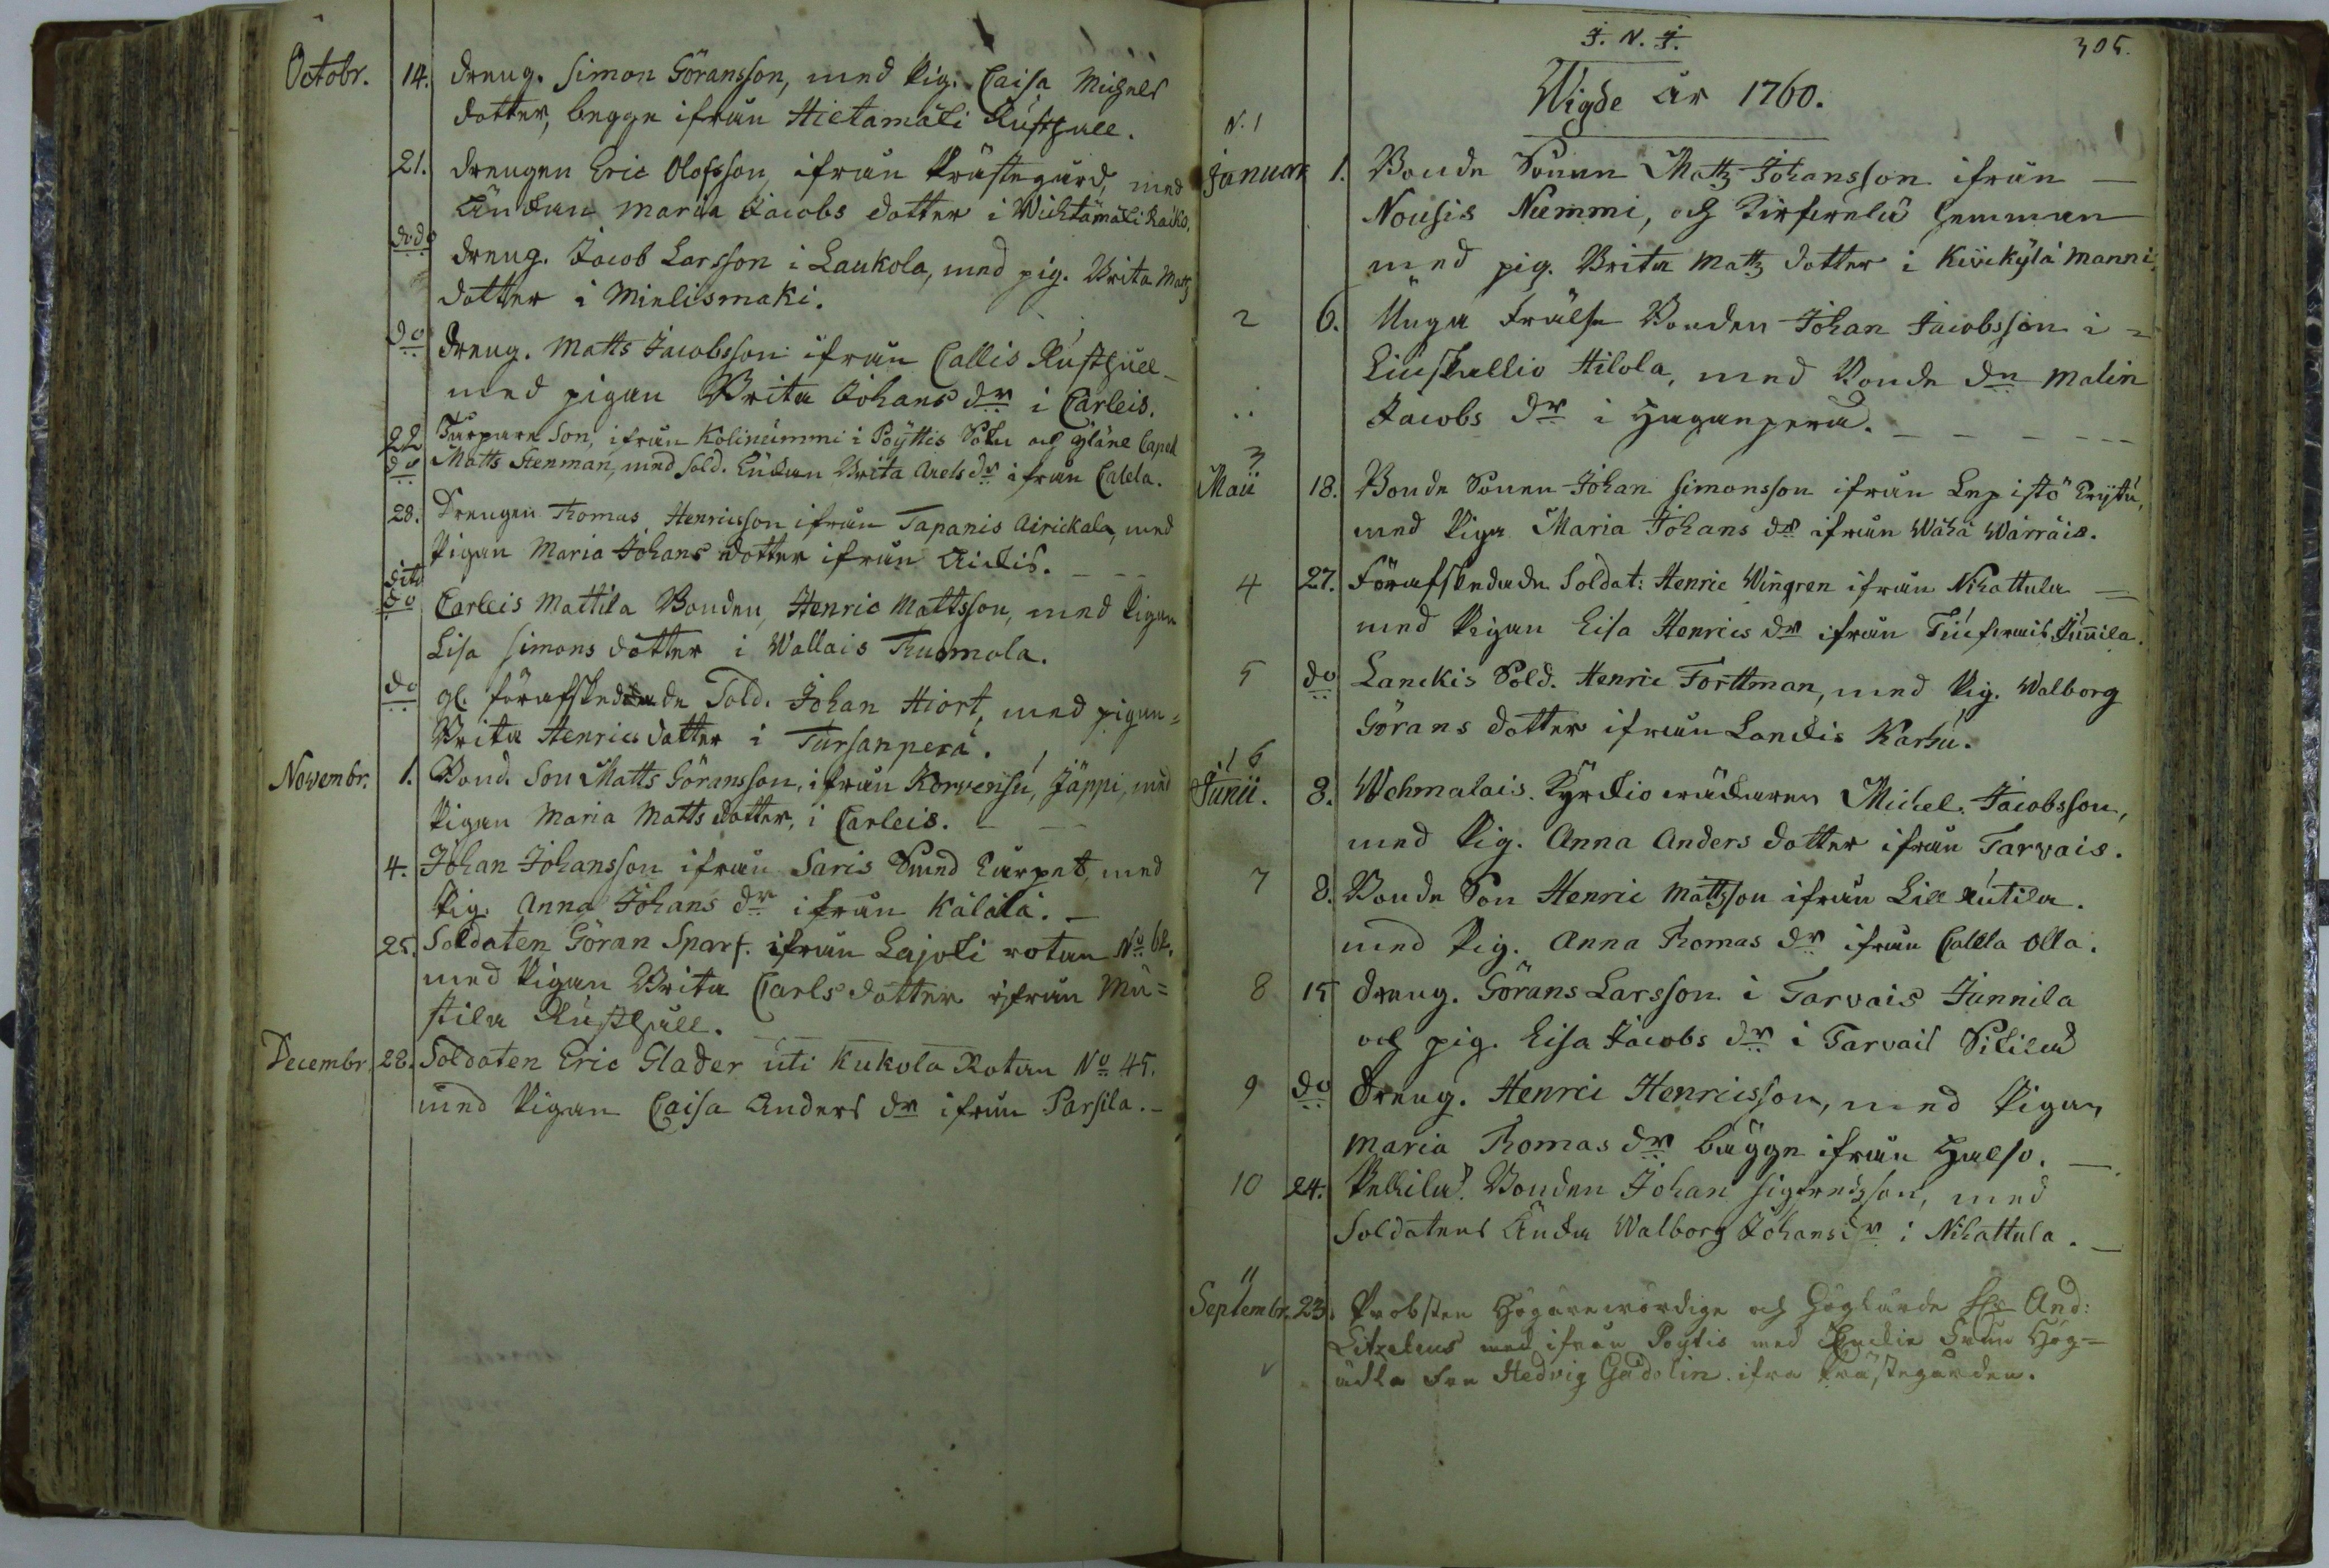 Octobr. 14. dreng. Simon Göransson, med Pig. Caisa Michels
dotter, begge ifrån Hietamäki Rusthåll.
21. drengen Eric Olofsson, ifrån Prästegård, med
Änkan Maria Jacobs dotter i Wichtämäki
do do dreng. Jacob Larsson i Laukola, med pig. Brita Matz
dotter i Mielismäki.
do dreng. Matts Jacobsson ifrån Callis Rusthåll
med pigan Brita Johans dr i Carleis.
22 Torpare Son, ifrån Kolinummi i Pöyttis Sokn och Yläne Capel
do Matts Stenman, med Sold. Enkan Brita Axels dr ifrån Calela.
28. Drengen Thomas Henricsson ifrån Tapanis Airickala, med
Pigan Maria Johans dotter ifrån
dito
do Carleis Mattila Bonden, Henric Mattsson, med Pigan
Lisa Simons dotter i Wallais Thuomola.
do gl. förafskedade Sold. Johan Hiort, med pigan
Brita Henrics dotter i Tursanperä.
Novembr. 1. Bond. Son Matts Göransson, ifrån Korvensu, Jäppi, med
Pigan Maria Matts dotter, i Carleis.
4. Johan Johansson ifrån Saris Sund Torpet, med
Pig. Anna Johans dr ifrån Kälälä.
25. Soldaten Göran Sparf. ifrån Lajoki rotan No 62.
med Pigan Brita Carls dotter ifrån Mu=
stila Rusthåll.
Decembr. 28. Soldaten Eric Glader uti Kukola Rotan No 45.
med Pigan Caisa Anders dr ifrån Parsila.
J. N. J.
305.
Wigde år 1760.
N. 1
Januar 1. Bonde Sonen Mattz Johansson ifrån
Nousis Nummi, och hemman
med pig. Brita Mattz dotter i Kivikylä Manni.
2 6. Unga Frälse Bonden Johan Jacobsson i =
Hilola, med Bonde dr Malin
Jacobs dr i Haganperä.
3
Maii 18. Bonde Sonen Johan Simonsson ifrån Lepistö
med Piga Maria Johans dr ifrån Wähä Wärräis.
4 27. Förafskedade Soldat: Henric Wingren ifrån Nihattula
med Pigan Lisa Henrics dr ifrån Junnila.
5 do Lanckis Sold. Henric Forttman, med Pig. Walborg
Görans dotter ifrån Lanckis Karhu.
6
Junii. 8. Wehmalais Kyrckio wäcktaren Michel Jacobsson,
med Pig. Anna Anders dotter ifrån Tarvais.
7 8. Bonde Son Henric Mattsson ifrån Lill Nutila.
med Pig. Anna Thomas dr ifrån Calela Olla.
8 15 dreng. Görans Larsson i Tarvais Junnila
och pig. Lisa Jacobs dr i Tarvais
9 do Dreng. Henric Henricsson, med Pigan
Maria Thomas dr bägge ifrån Halso.
10 24. Bonden Johan Sigfredsson, med
Soldatens Änka Walborg Johans dr i Nihattula.
11
Septembr. 23. Probsten Högärewördige och Höglärde Hr And:
Litzelius med ifrån Poytis med Encke Frun Hög=
ädla Fru Hedvig Gadolin ifrå Prästegården.